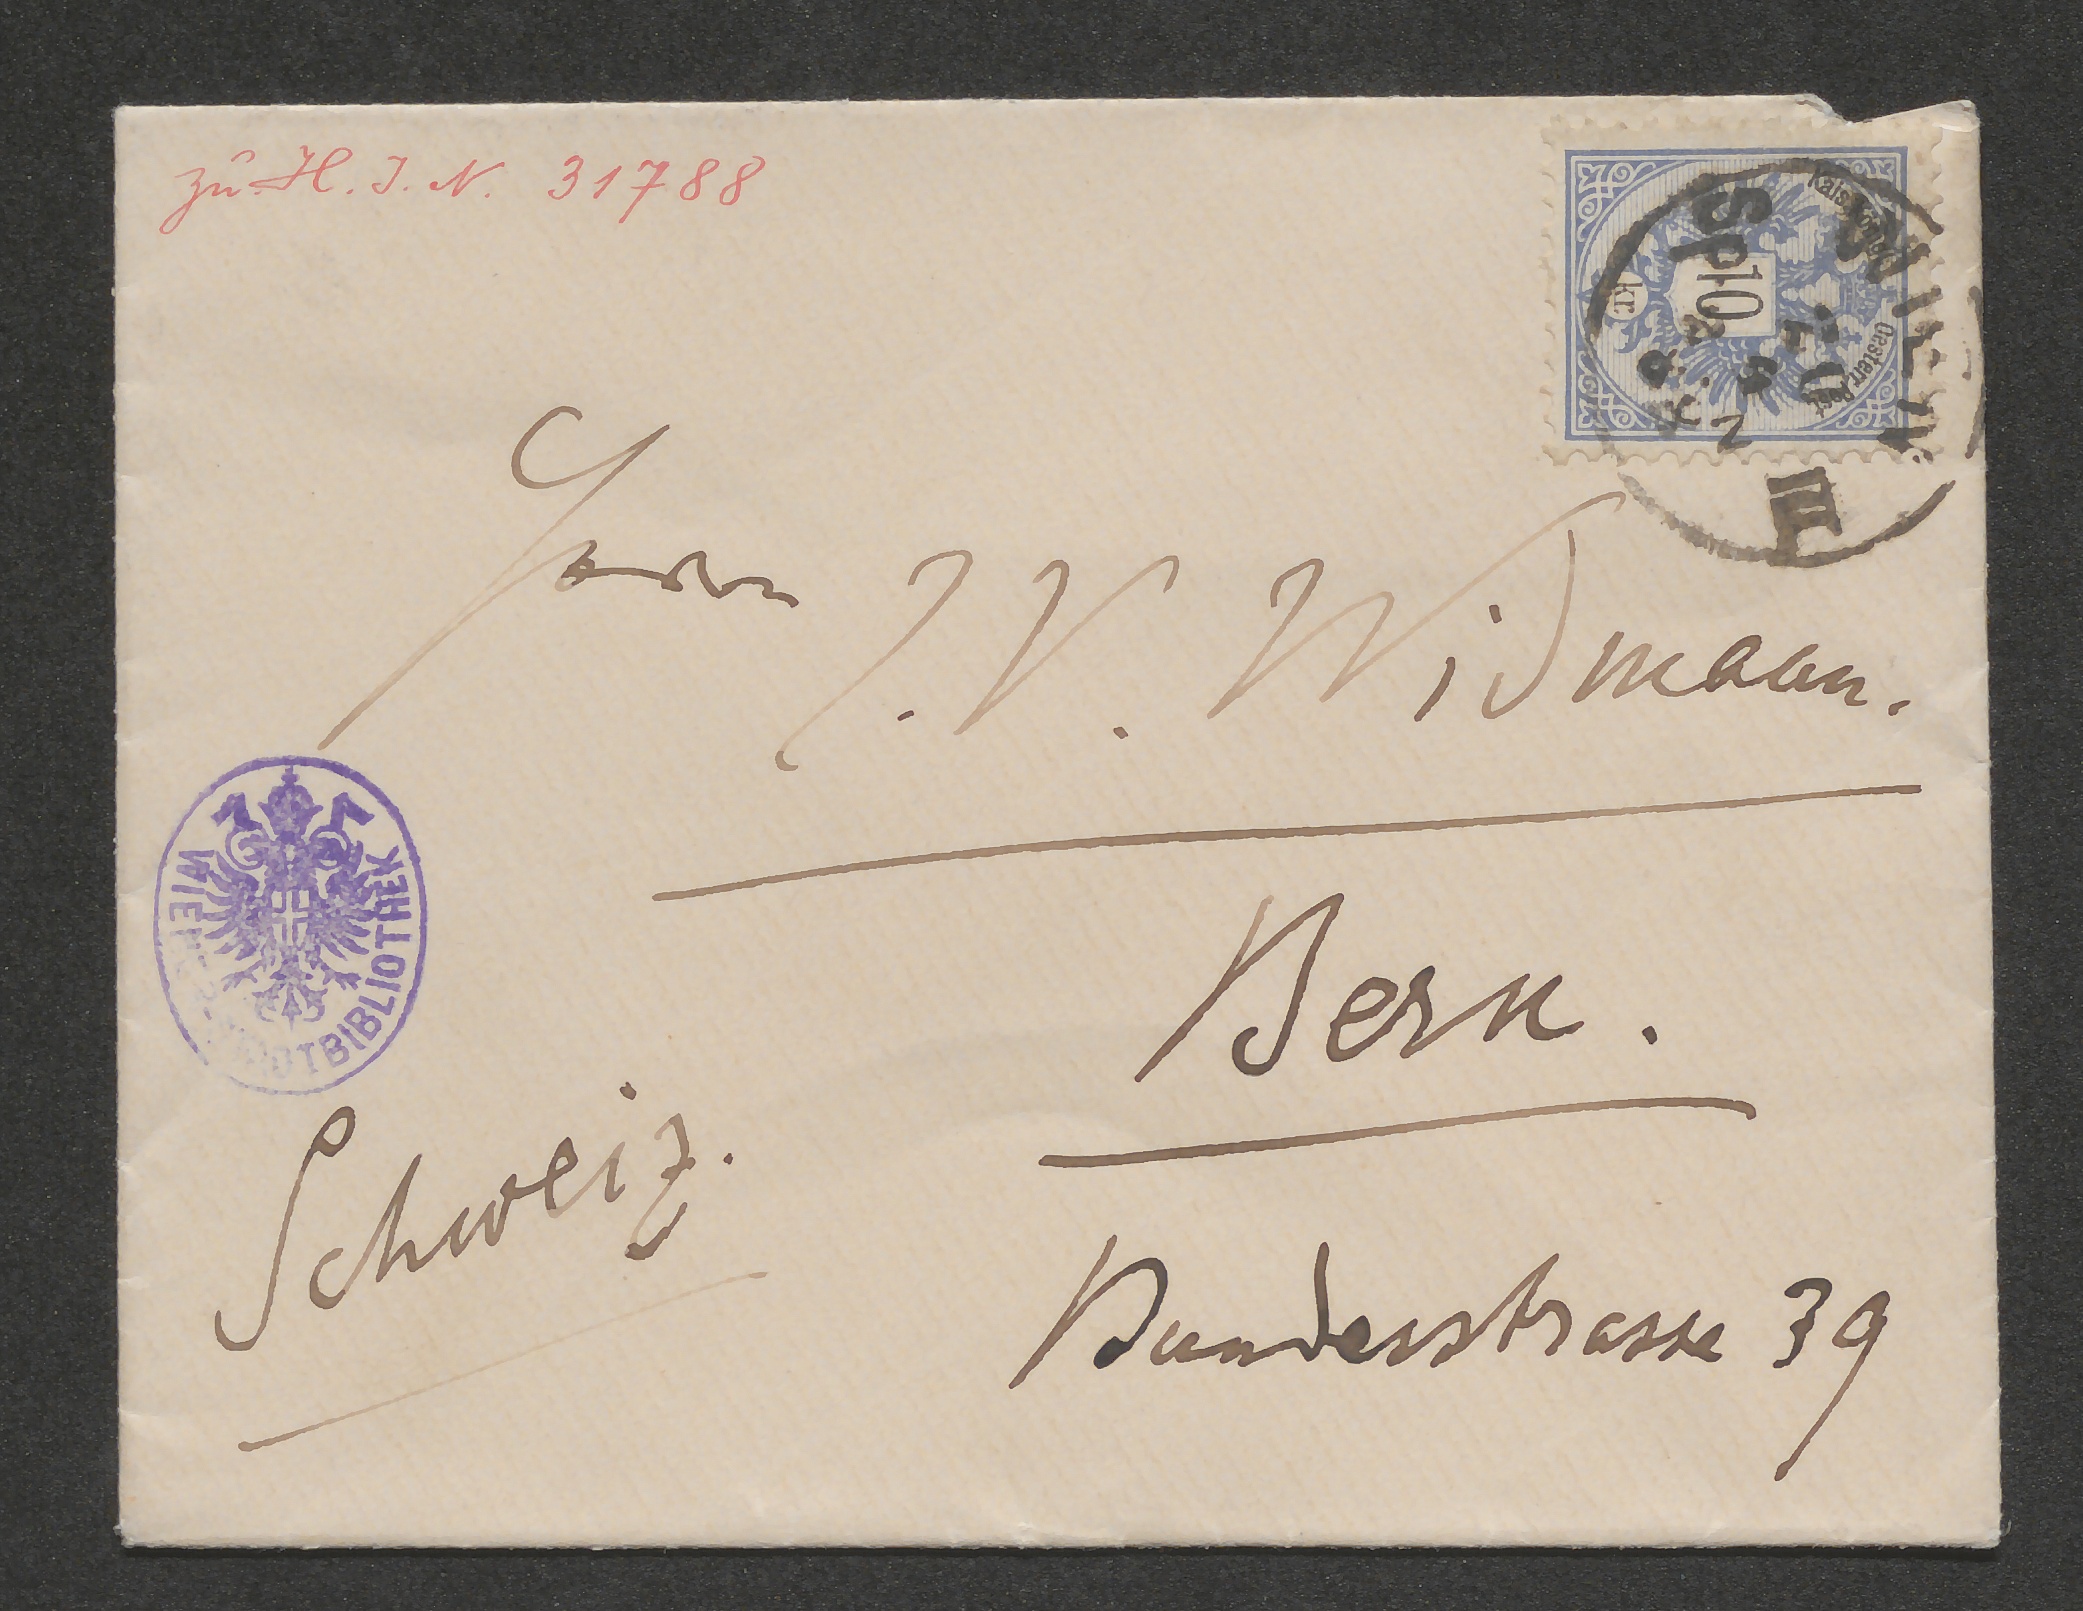 zu H. I. N. 31788
Kais. Königl. Oesterr. Post.
10
kr
WIEN
III
Herrn J. V. Widmann.
WIENER STADTBIBLIOTHEK
Bern.
Schweiz.
Bundesstrasse 39